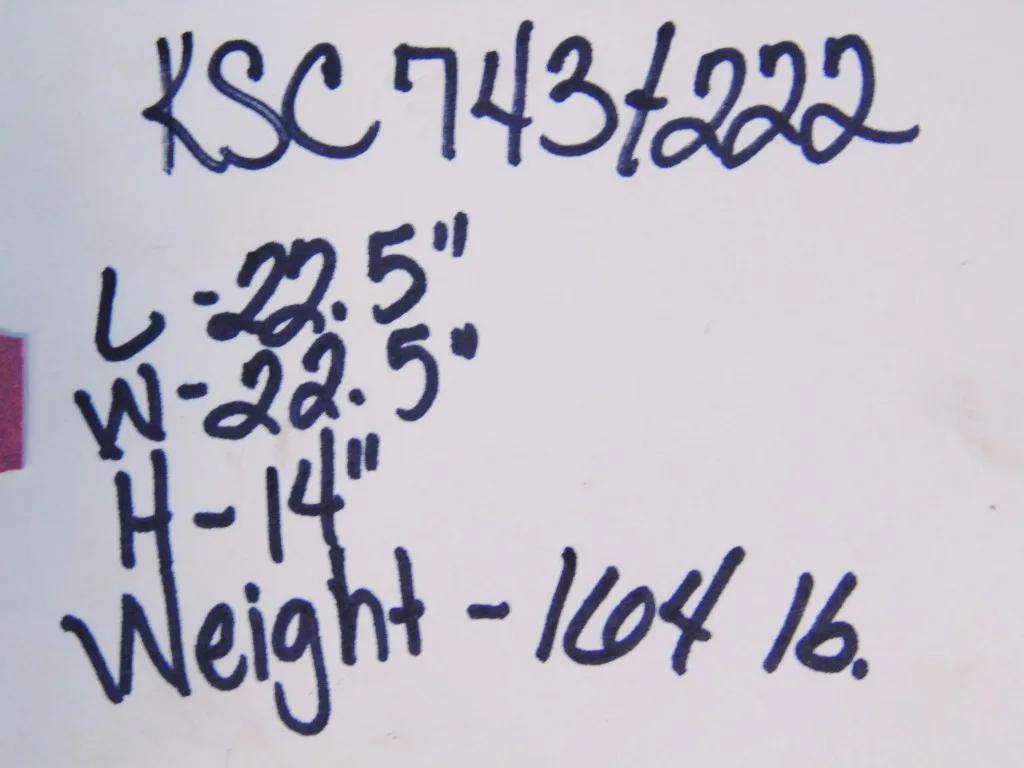 KSC 743/222
L - 22.5"
W - 22.5"
H - 14"
Weight - 164 lb.